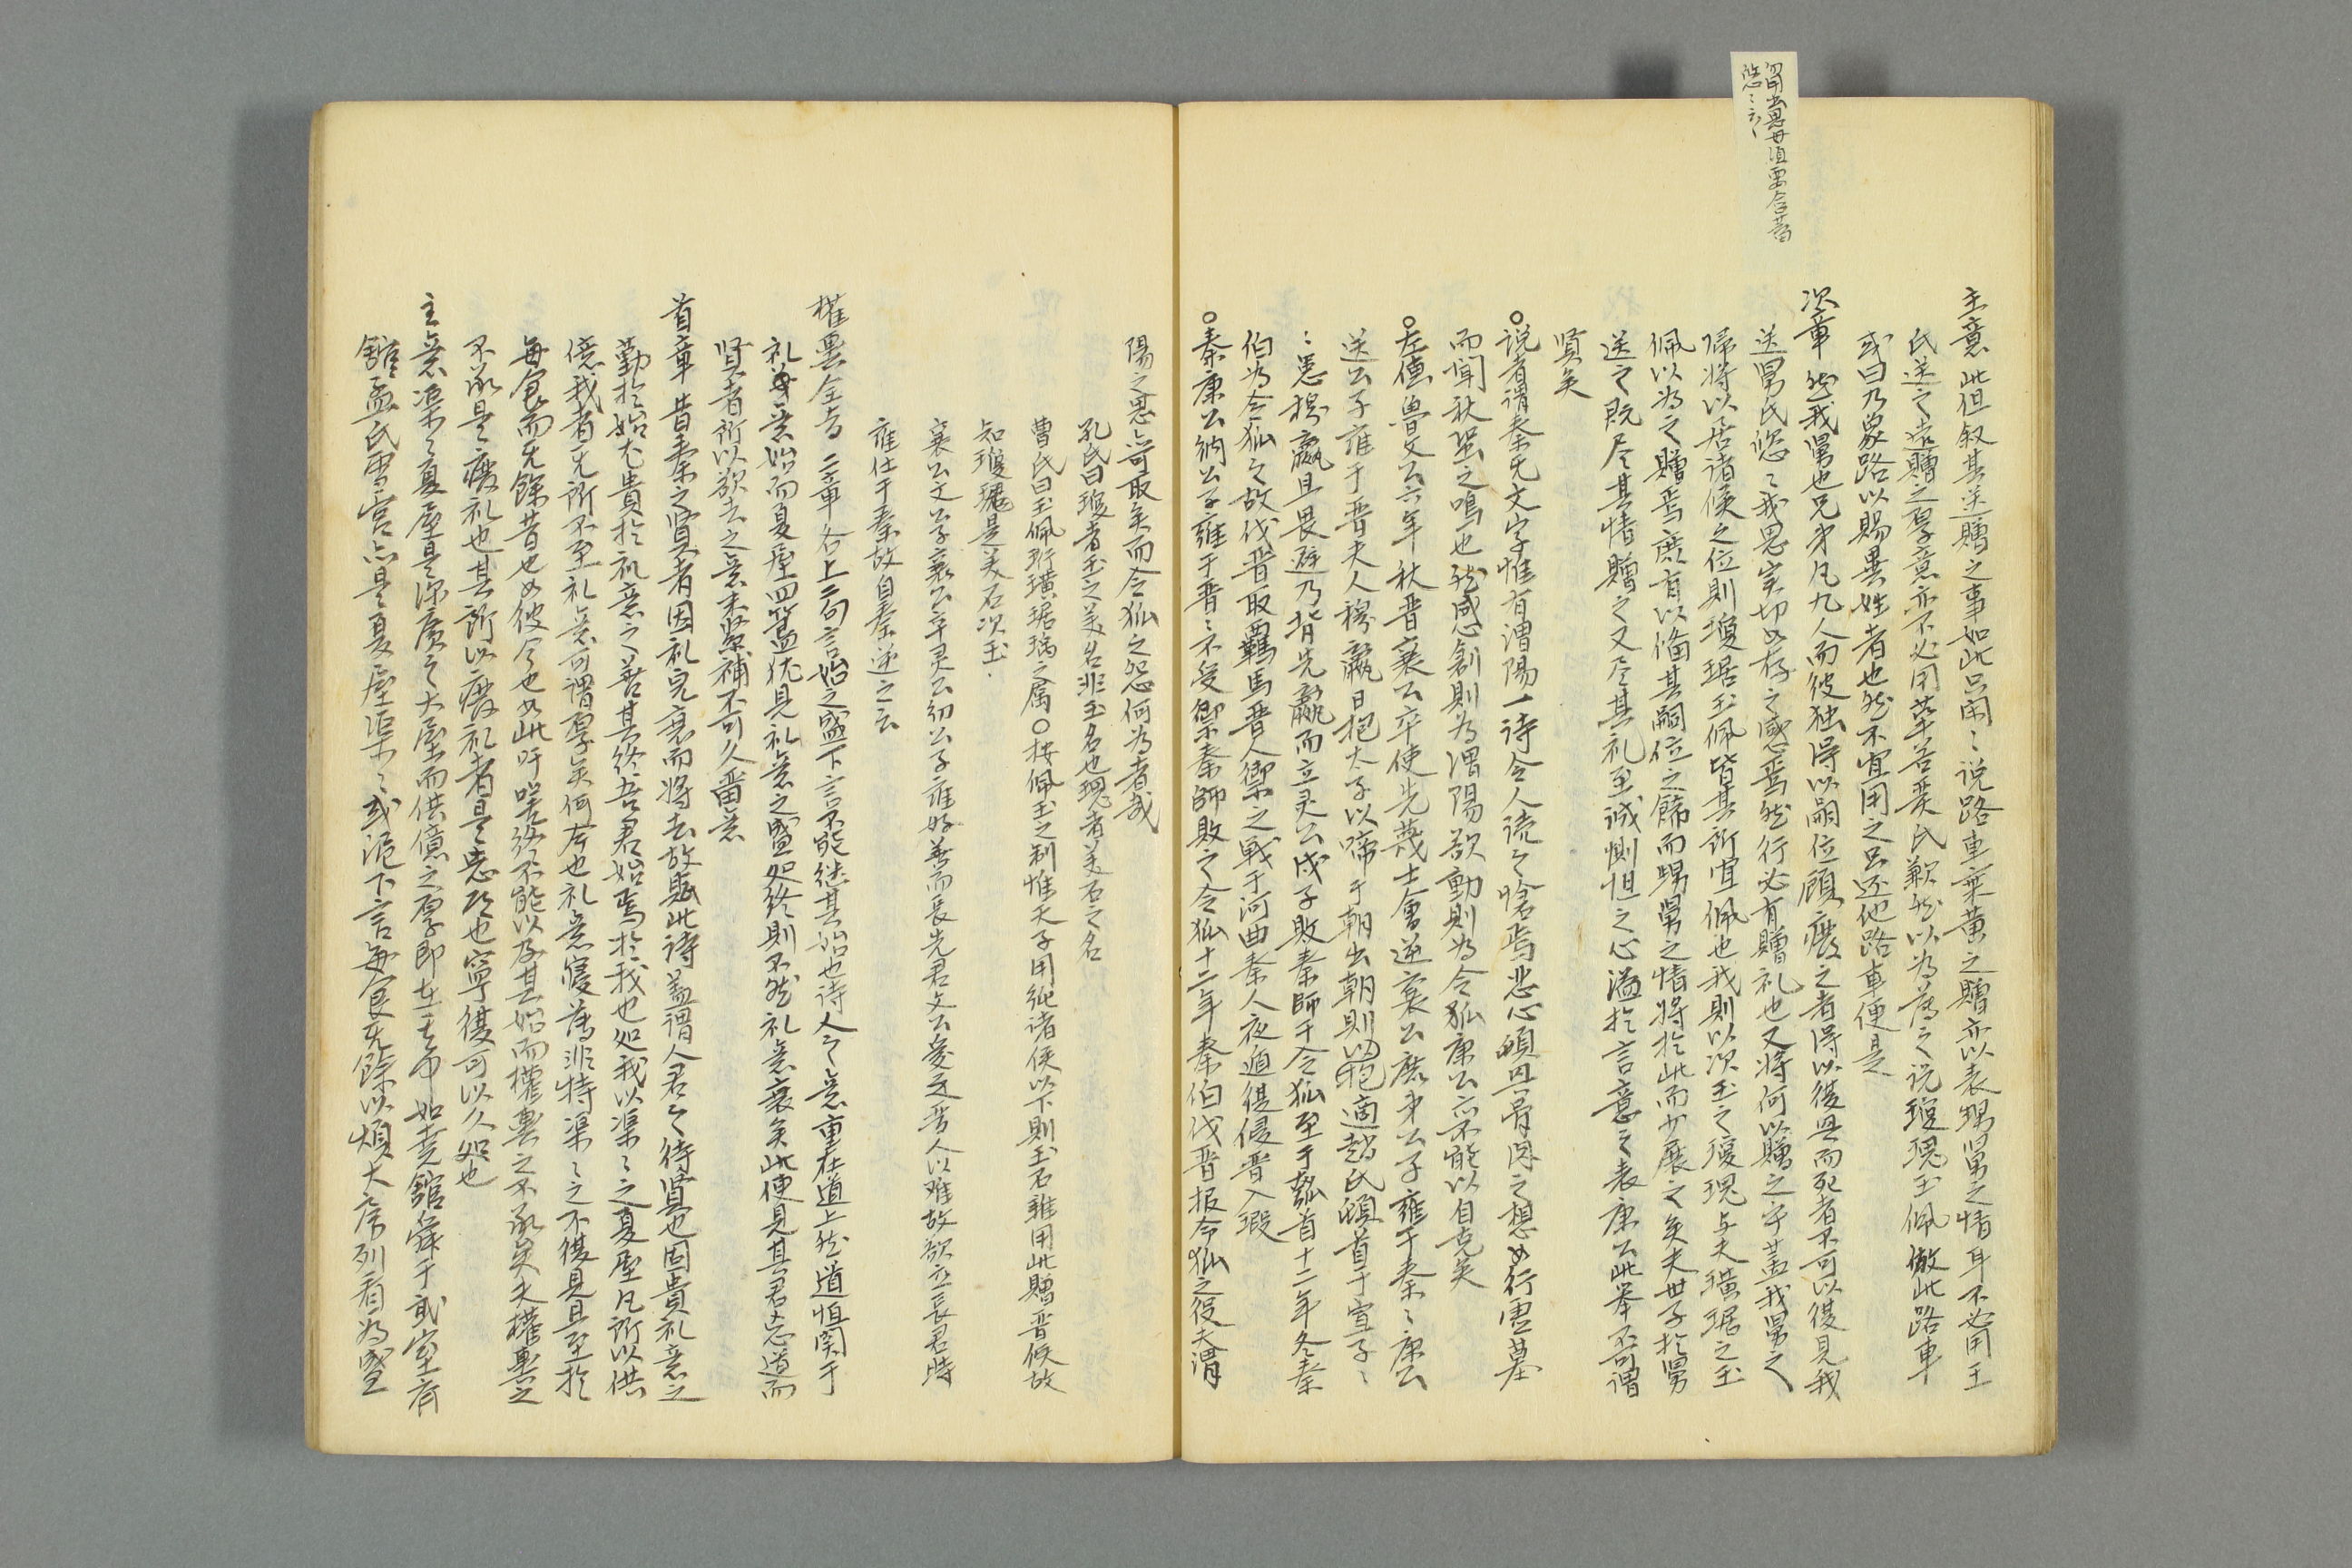 勿用出思母酒要含蓄
悠〻云〻
主意 此但叙其送贈之事如此只閑〻说路車乘黃之贈亦以表甥舅之情耳不必用王
氏送之遠贈之厚意亦不必用華谷嚴氏歉然以為薄之说瓊瑰玉佩倣此路車
或曰乃象路以賜異姓者也然不宜用之只还他路車便是
次章 然我舅也兄弟凡九人而彼独得以嗣位顧廢之者得以復興而死者不可以復見我
送舅氏悠〻我思实切如存之感焉然行必有贈礼也又將何以贈之乎盖我舅之
帰將以居诸侯之位則瓊琚玉佩皆其所宜佩也我則以次玉之瓊瑰与夫璜琚之玉
佩以為之贈焉庶有以偹其嗣位之餙而甥舅之情將於此而少展之矣夫世子於舅
送之既尽其情贈之又尽其礼至诚惻怛之心溢於言意之表康公此举不可謂
賢矣
○说者谓秦无文字惟有渭陽一诗令人读之愴焉悲心頓四骨肉之想如行墟墓
而闻秋蛩之鳴也然感心創則為渭陽欲動則為令狐康公亦不能以自克矣
○左傳魯文公六年秋晋襄公卒使先蔑士會逆襄公庶弟公子雍于秦〻康公
送公子雍于晋夫人穆嬴日抱太子以啼于朝出朝則以抱適趙氏頓首于宣子〻
〻患穆嬴且畏避乃背先蔑而立灵公戊子敗秦師于令狐至于刳首十二年冬秦
伯为令狐之故伐晋取羈馬晋人禦之戰于河曲秦人夜遁復侵晋入瑕
○秦康公纳公子雍于晋〻不受禦秦師敗之令狐十二年秦伯伐晋报令狐之役夫渭
陽之思亦可取矣而令狐之怨何为者哉
孔氏曰瓊者玉之美名非玉名也瑰者美石之名
曹氏曰玉佩珩璜琚瑀之属○按佩玉之制惟天子用纯诸侯以下則玉石雜用此贈晋侯故
知瓊瑰是美石次玉
襄公文公子襄公卒灵公幼公子雍好善而長先君文公爱之晋人以难故欲立長君時
雍仕于秦故自秦逆之云
權輿全旨 二章各上二句言始之盛下言不能继其始也诗人之意重在道上然道恒関于
礼意始而夏屋四簋犹見礼意之盛处终則不然礼意衰矣此便見其君忘道而
賢者所以欲去之意末緊補不可久畱意
首章 昔秦之賢者因礼皃衰而將去故賦此诗盖謂人君之待賢也固贵礼意之
勤於始尤贵於礼意之善其终吾君始焉於我也处我以渠〻之夏屋凡所以供
億我者无所不至礼意可謂厚矣何今也礼意寖薄非特渠〻之不復見且至於
每食而无餘昔也如彼今也如此吁嗟终不能以及其始而權輿之不承矣夫權輿之
不承是廢礼也其所以廢礼者是忘道也寧復可以久处也
主意渠〻夏屋是深廣之大屋而供億之厚即在其中如尭館舜于貳室齐
館孟氏雪宫亦是夏屋渠〻或泥下言每食无餘以頫大房列看为盛